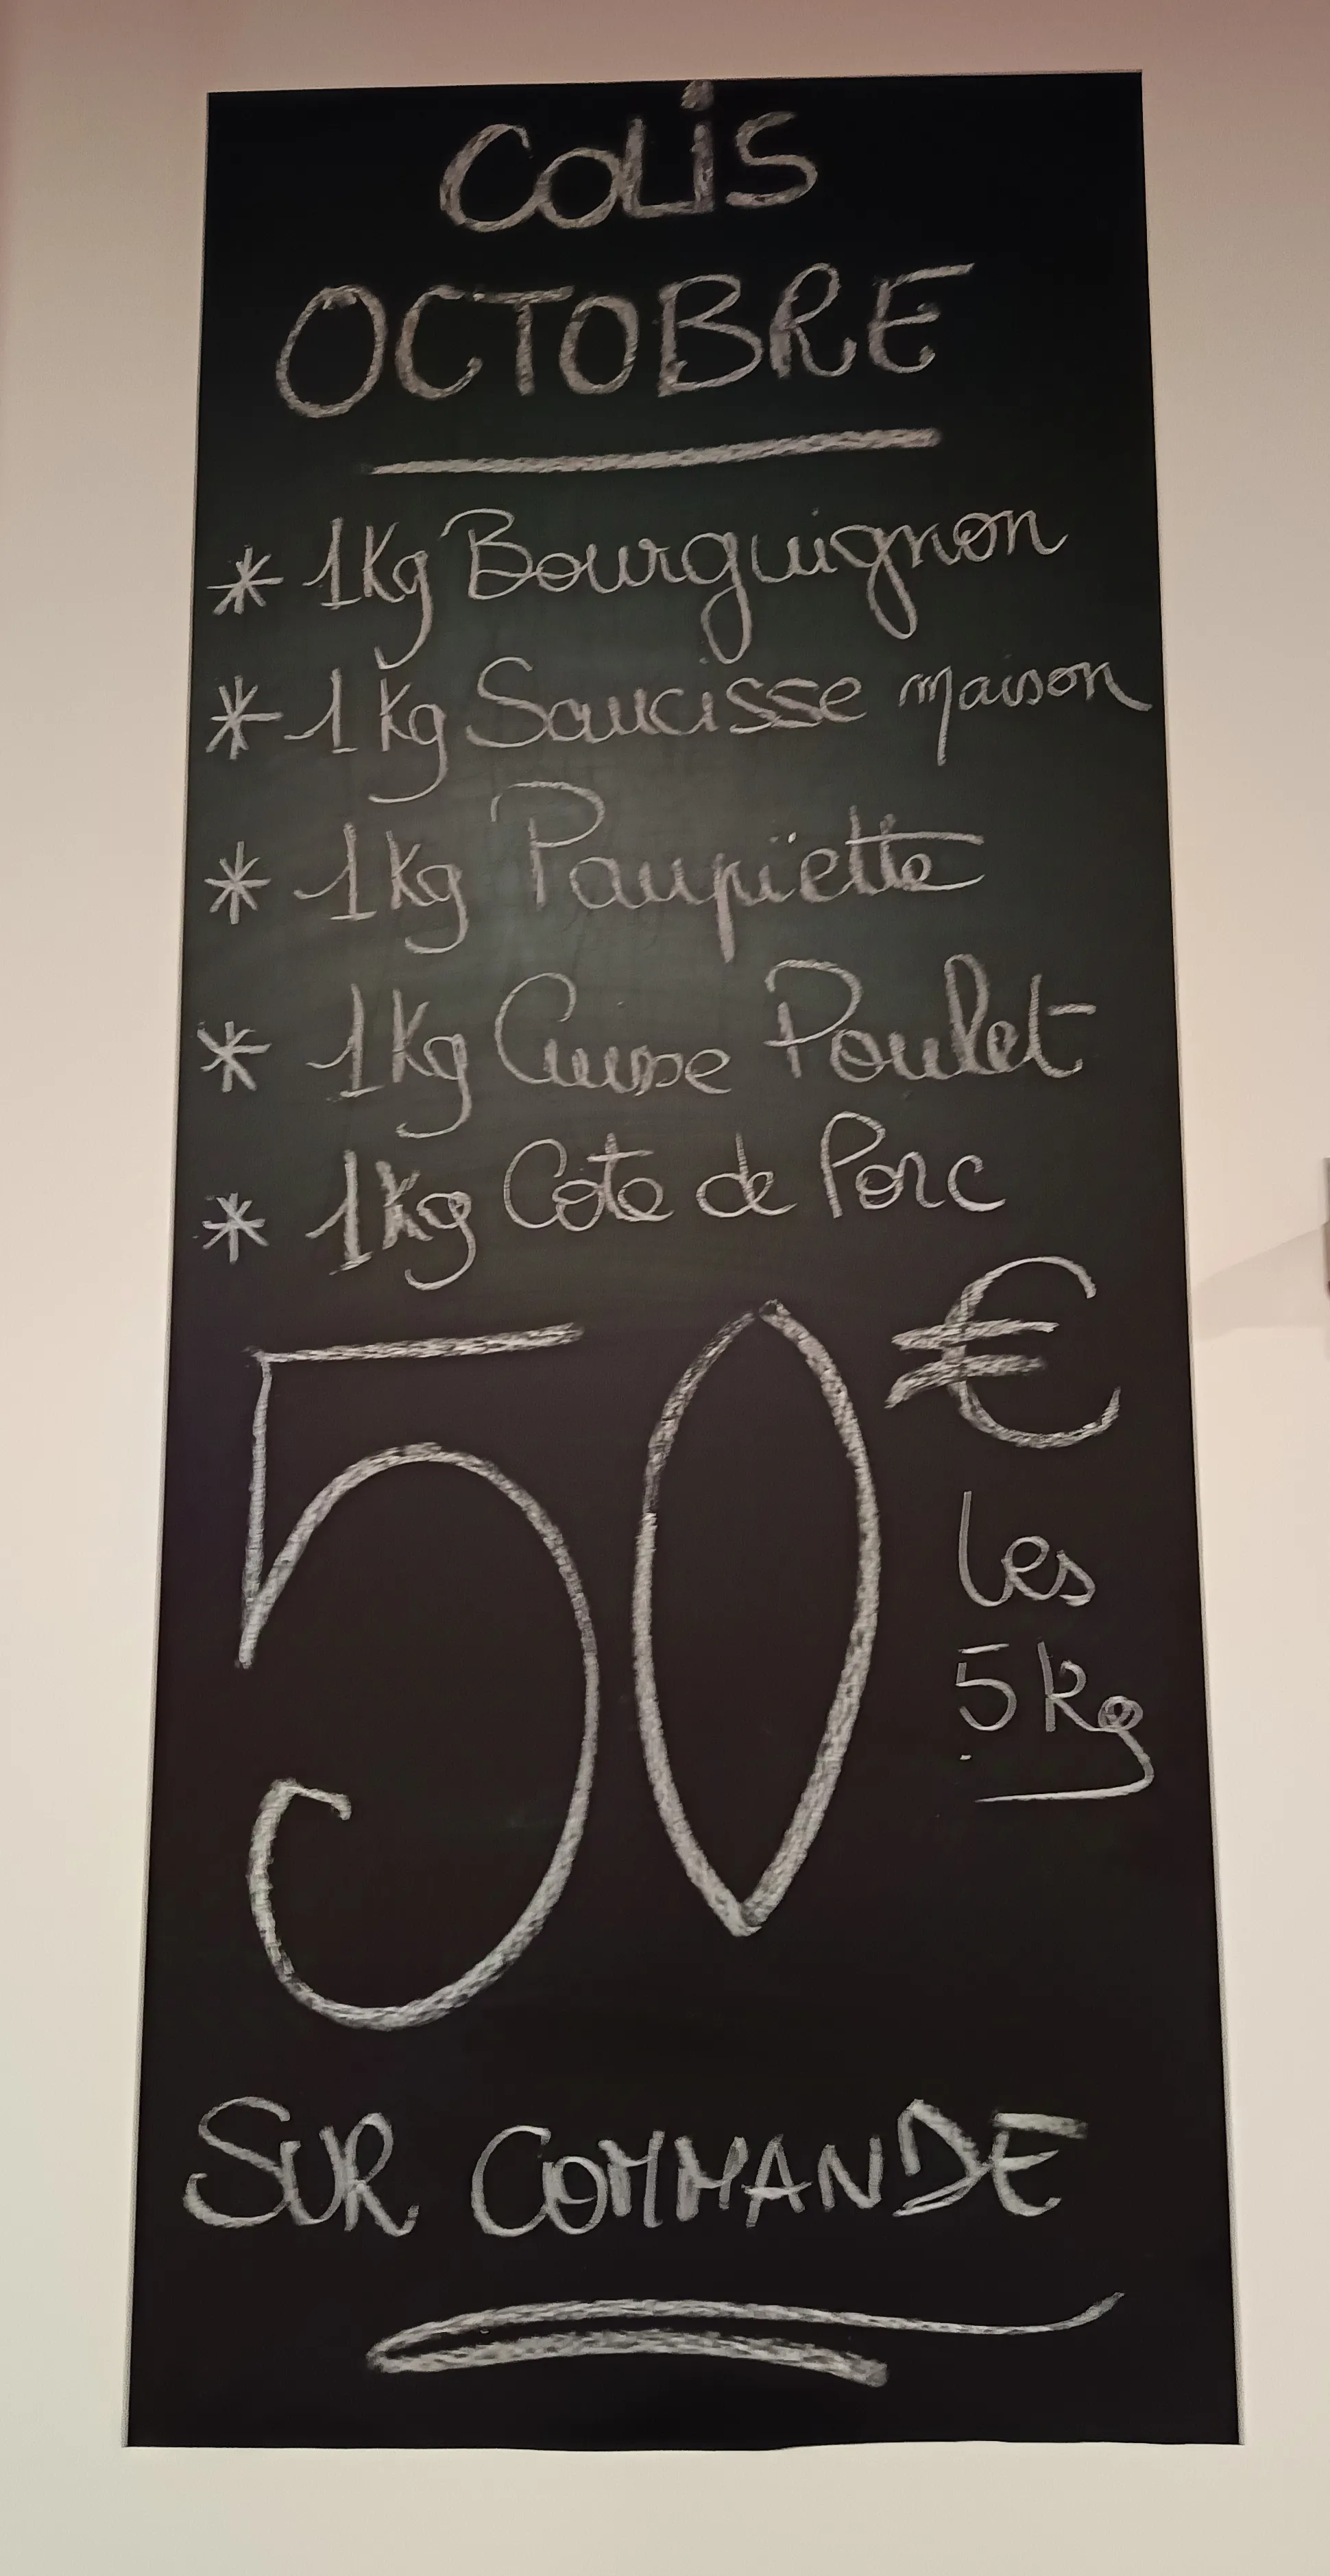 COLiS
OCTOBRE
* 1Kg Bourguignon
* 1kg Saucisse maison
* 1kg Paupiette
* 1kg Cuisse Poulet
* 1kg Cote de Porc
50 €
les
5kg
SUR COMMANDE